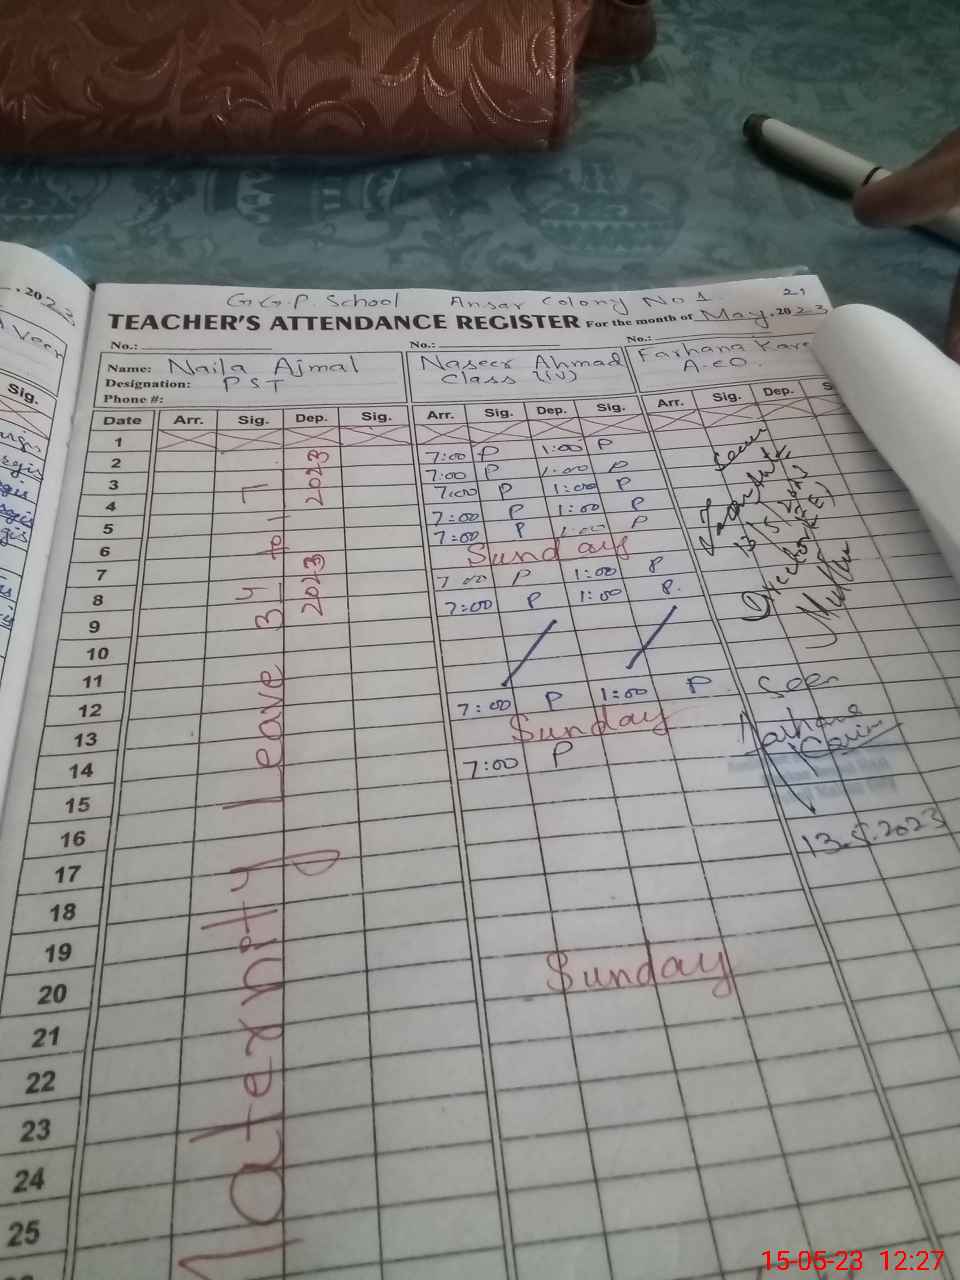 G.G.P. School Ansar Colony No 1. 21
TEACHER'S ATTENDANCE REGISTER For the month of May, 2023
No.: No.: No.:
Name: Naila Ajmal
Designation: PST
Phone #:
Naseer Ahmad
Class (IV)
Farhana
A.EO.
Date Arr. Sig. Dep. Sig. Arr. Sig. Dep. Sig. Arr. Sig. Dep. S
1
2 7:00 P 1:00 P
3 7:00 P 1:00 P
4 7:00 P 1:00 P
5 7:00 P 1:00 P
6 7:00 P 1:00 P
Sunday
7
8 7:00 P 1:00 P
9 7:00 P 1:00 P.
10
11
12 7:00 P 1:00 P
13 Sunday
14 7:00 P
15
16
17
18
19
20 Sunday
21
22
23
24
25
Maternity Leave 3-4 to 1-7
2023 2023
Seen
Seen
Farhana
Karim
13.5.2023
, 2023
Sig.
15-05-23 12:27